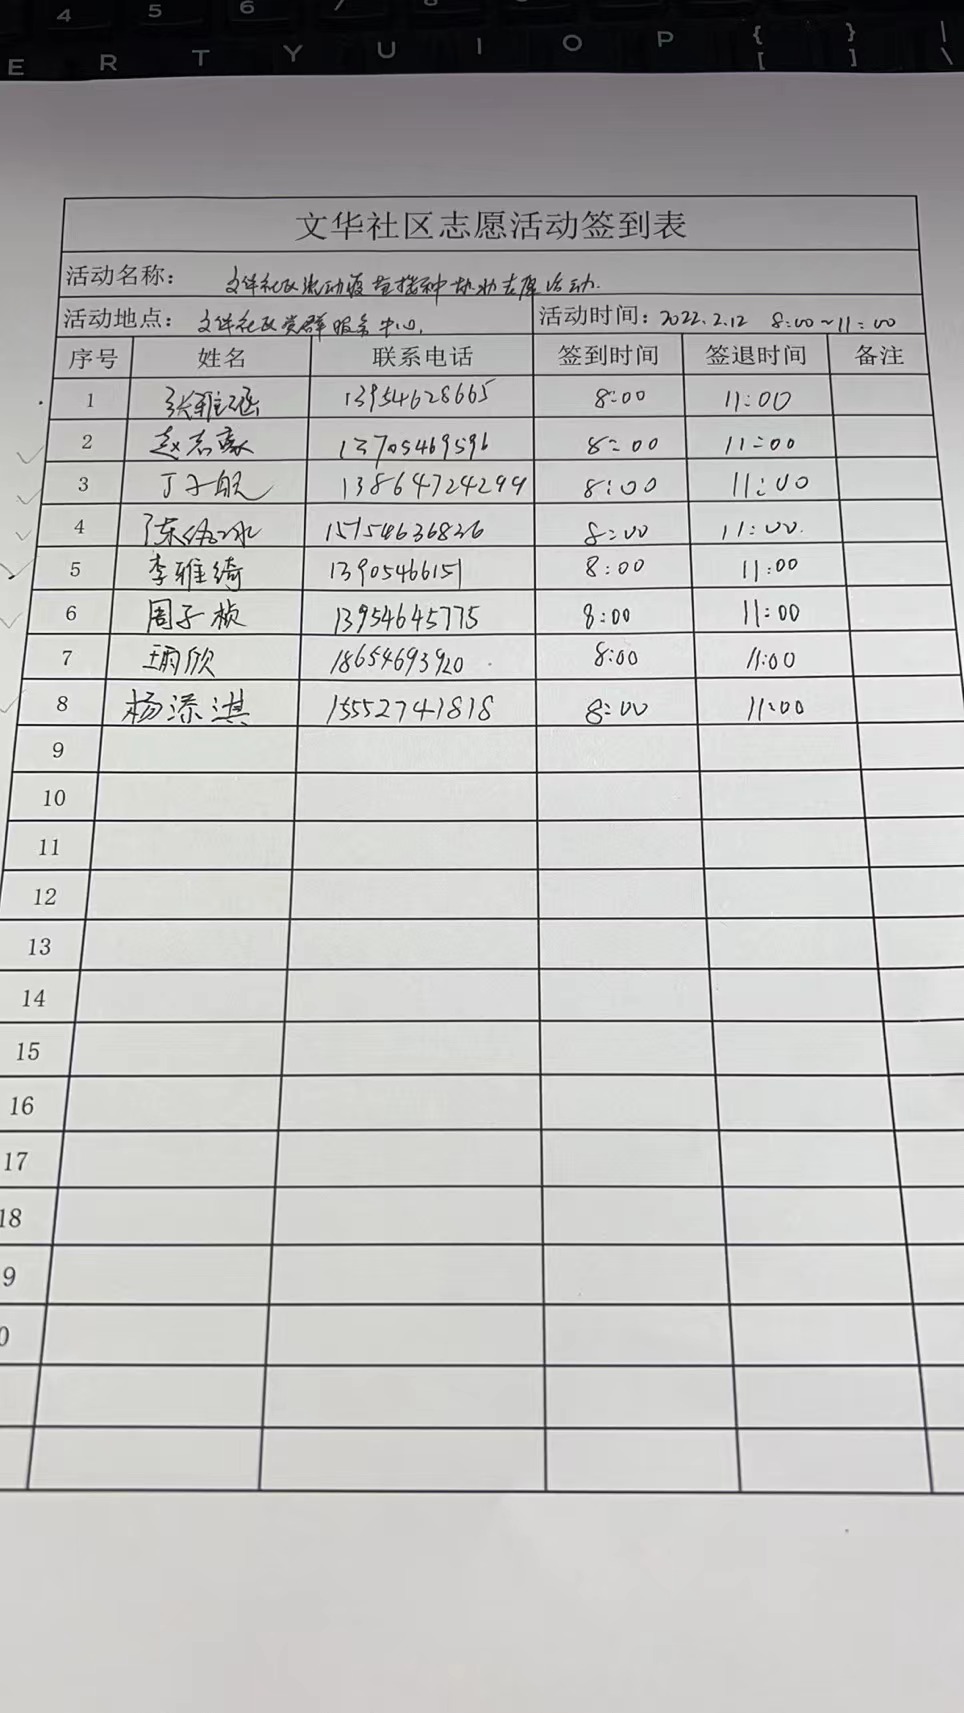 4 5 6 7 8
E R T Y U I O P { [ } ] | \
文华社区志愿活动签到表
活动名称: 文华社区流动疫苗接种协助志愿活动.
活动地点: 文华社区党群服务中心. 活动时间: 2022.2.12 8:00~11:00
序号 姓名 联系电话 签到时间 签退时间 备注
1 张雅涵 13954628665 8:00 11:00
2 赵志豪 13705469596 8:00 11:00
3 丁子航 13864724299 8:00 11:00
4 陈 冰 15154636826 8:00 11:00.
5 李雅绮 13905466151 8:00 11:00
6 周子桢 13954645775 8:00 11:00
7 王雨欣 18654693920 8:00 11:00
8 杨添淇 15552741818 8:00 11:00
9
10
11
12
13
14
15
16
17
18
9
0